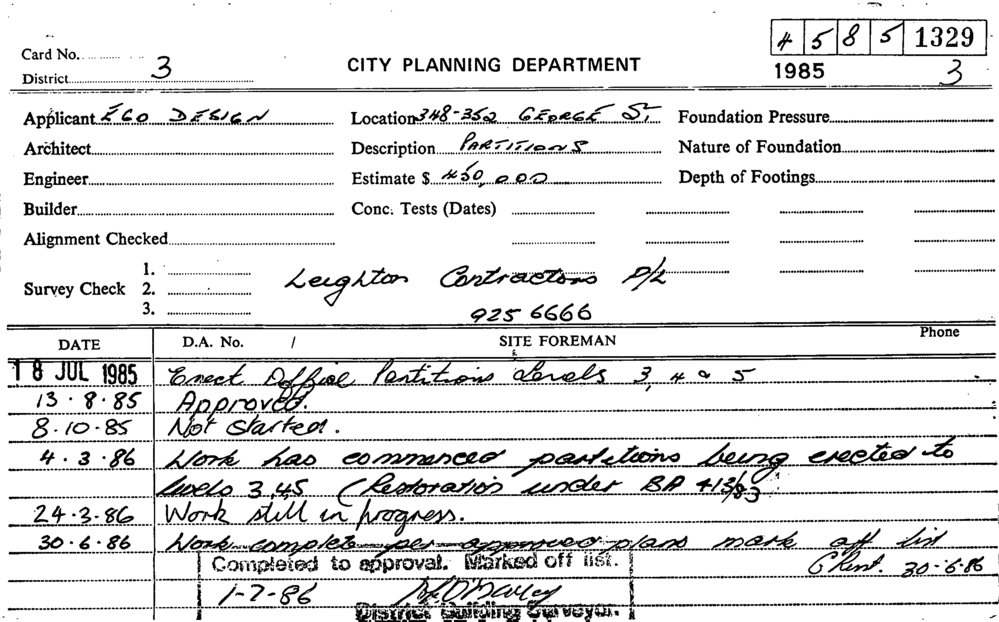 4 5 8 5 1329
Card No.
CITY PLANNING DEPARTMENT
1985 3
District 3
Applicant EGO DESIGN Location 348-352 GEORGE ST, Foundation Pressure
Architect Description PARTITIONS Nature of Foundation
Engineer Estimate $ 450,000 Depth of Footings
Builder Conc. Tests (Dates)
Alignment Checked
Survey Check 1.
2. Leighton Contractors P/L
3. 925 6666
DATE D.A. No. / SITE FOREMAN Phone
18 JUL 1985 Erect Partitions Levels 3, 4 & 5
13.8.85 Approved.
8.10.85 Not started.
4.3.86 Work has commenced partitions being erected to
levels 3,45 (Restoration under BA 413/83
24.3.86 Work still in progress.
30.6.86 Work complete per approved plans mark off list
Completed to approval. Marked off list. 30-6-86
1-7-86
District Building Surveyor.